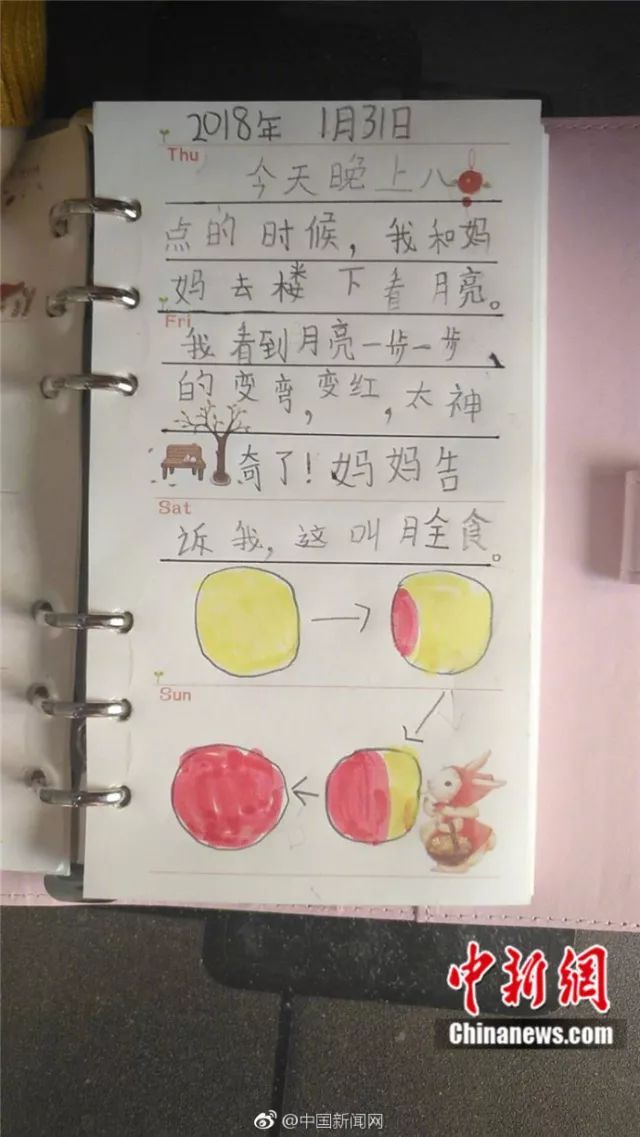 2018年 1月31日
Thu
今天晚上八
点的时候,我和妈
妈去楼下看月亮。
Fri
我看到月亮一步一步
的变弯,变红,太神
奇了!妈妈告
Sat
诉我,这叫月全食。
Sun
中新网
Chinanews.com
@中国新闻网